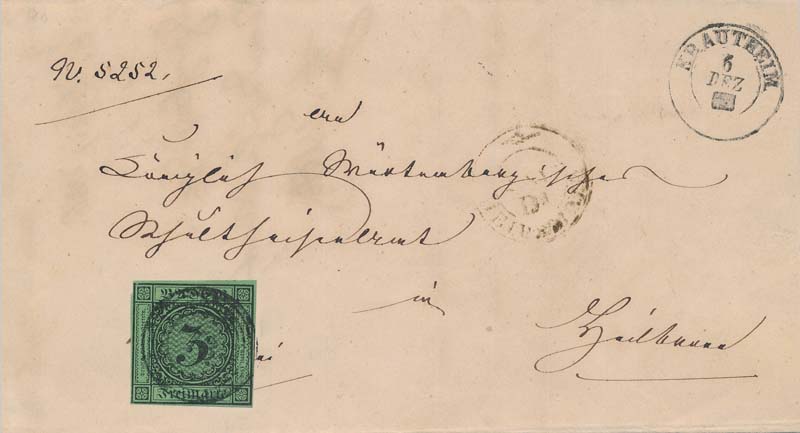 N. 5252.
KRAUTHEIM
6
DEZ
An
Königlich Würtembergisches
Schultheißenamt
in
Heilbronn
3
Freimarke